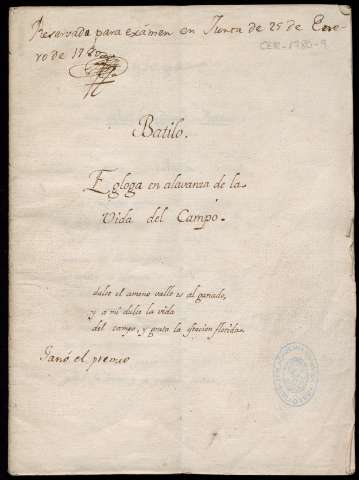 Reservada para exámen en Junta de 25 de Ene-
ro de 1780
CER-1780-9
Batilo.
Egloga en alavanza de la
Vida del Campo.
dulce el ameno valle es al ganado,
y a mi dulce la vida
del campo, y grata la florida.
Ganó el premio